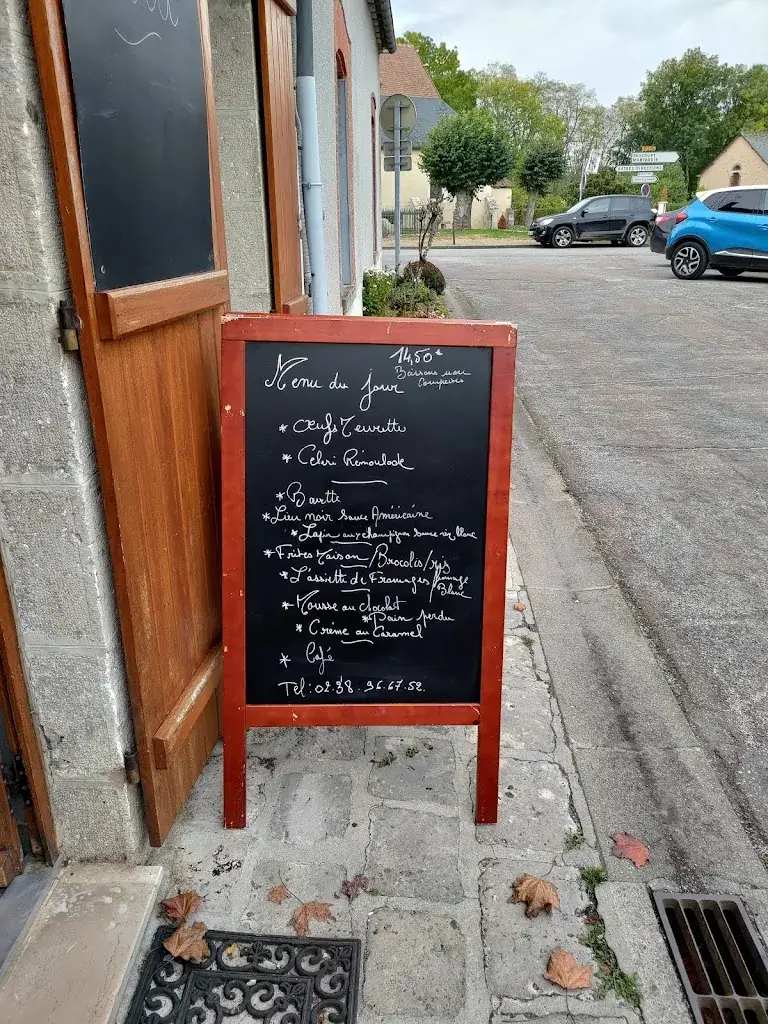 Menu du jour
14,50€
Boissons non
Comprises
* Œufs Meurette
* Céleri Rémoulade
* Bavette
* Lieu noir sauce Américaine
* Lapin aux champignons sauce vin blanc
* Frites Maison / Brocolis / riz
* L'assiette de Fromages / fromage
Blanc
* Mousse au chocolat
* Pain perdu
* Crème au Caramel
* Café
Tel: 02.38.96.67.52.
AUTRES DIRECTIONS